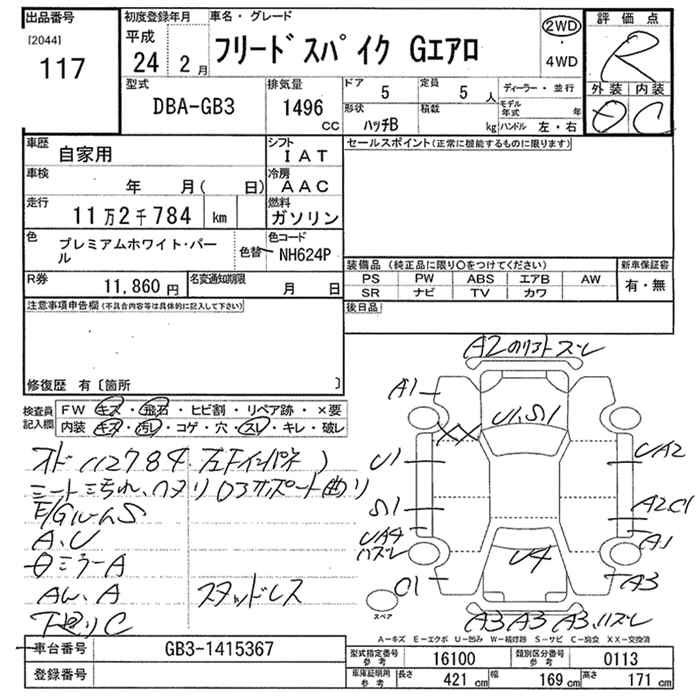 出品番号
[2044]
117
初度登録年月
平成
24 2月
車名・グレード
フリードスパイク Gエアロ
2WD
・
4WD
評価点
R
外装 内装
D C
型式
DBA-GB3
排気量
1496
CC
ドア
5
定員
5 人
形状
ハッチB
積載
kg
ディーラー・並行
モデル年式 年
ハンドル 左・右
車歴
自家用
シフト
IAT
車検
年 月( 日)
冷房
AAC
走行
11万2千784 km
燃料
ガソリン
色
プレミアムホワイト・パール
色替
色コード
NH624P
R券
11,860 円
名変通知期限
月 日
セールスポイント(正常に機能するものに限ります)
装備品 (純正品に限り○をつけてください)
PS PW ABS エアB AW
SR ナビ TV カワ
新車保証書
有・無
後日品
注意事項申告欄(不具合内容等は具体的に記入して下さい)
修復歴 有〔箇所 〕
検査員記入欄
FW キズ・飛石・ヒビ割・リペア跡・×要
内装 キズ・汚レ・コゲ・穴・スレ・キレ・破レ
112784
E/Gルーム S
A、U
ミラーA
スタッドレス
A2
A1
U1、S1
U1
UA2
S1
A2C1
UA4
ハズレ
A1
U4
C1
A3
A3 A3 A3、ハズレ
スペア
A-キズ E-エクボ U-凹み W-補修跡 S-サビ C-腐食 XX-交換済
車台番号
GB3-1415367
登録番号
型式指定番号
参考
16100
類別区分番号
参考
0113
車庫証明用
参考
長さ
421 cm
幅
169 cm
高さ
171 cm